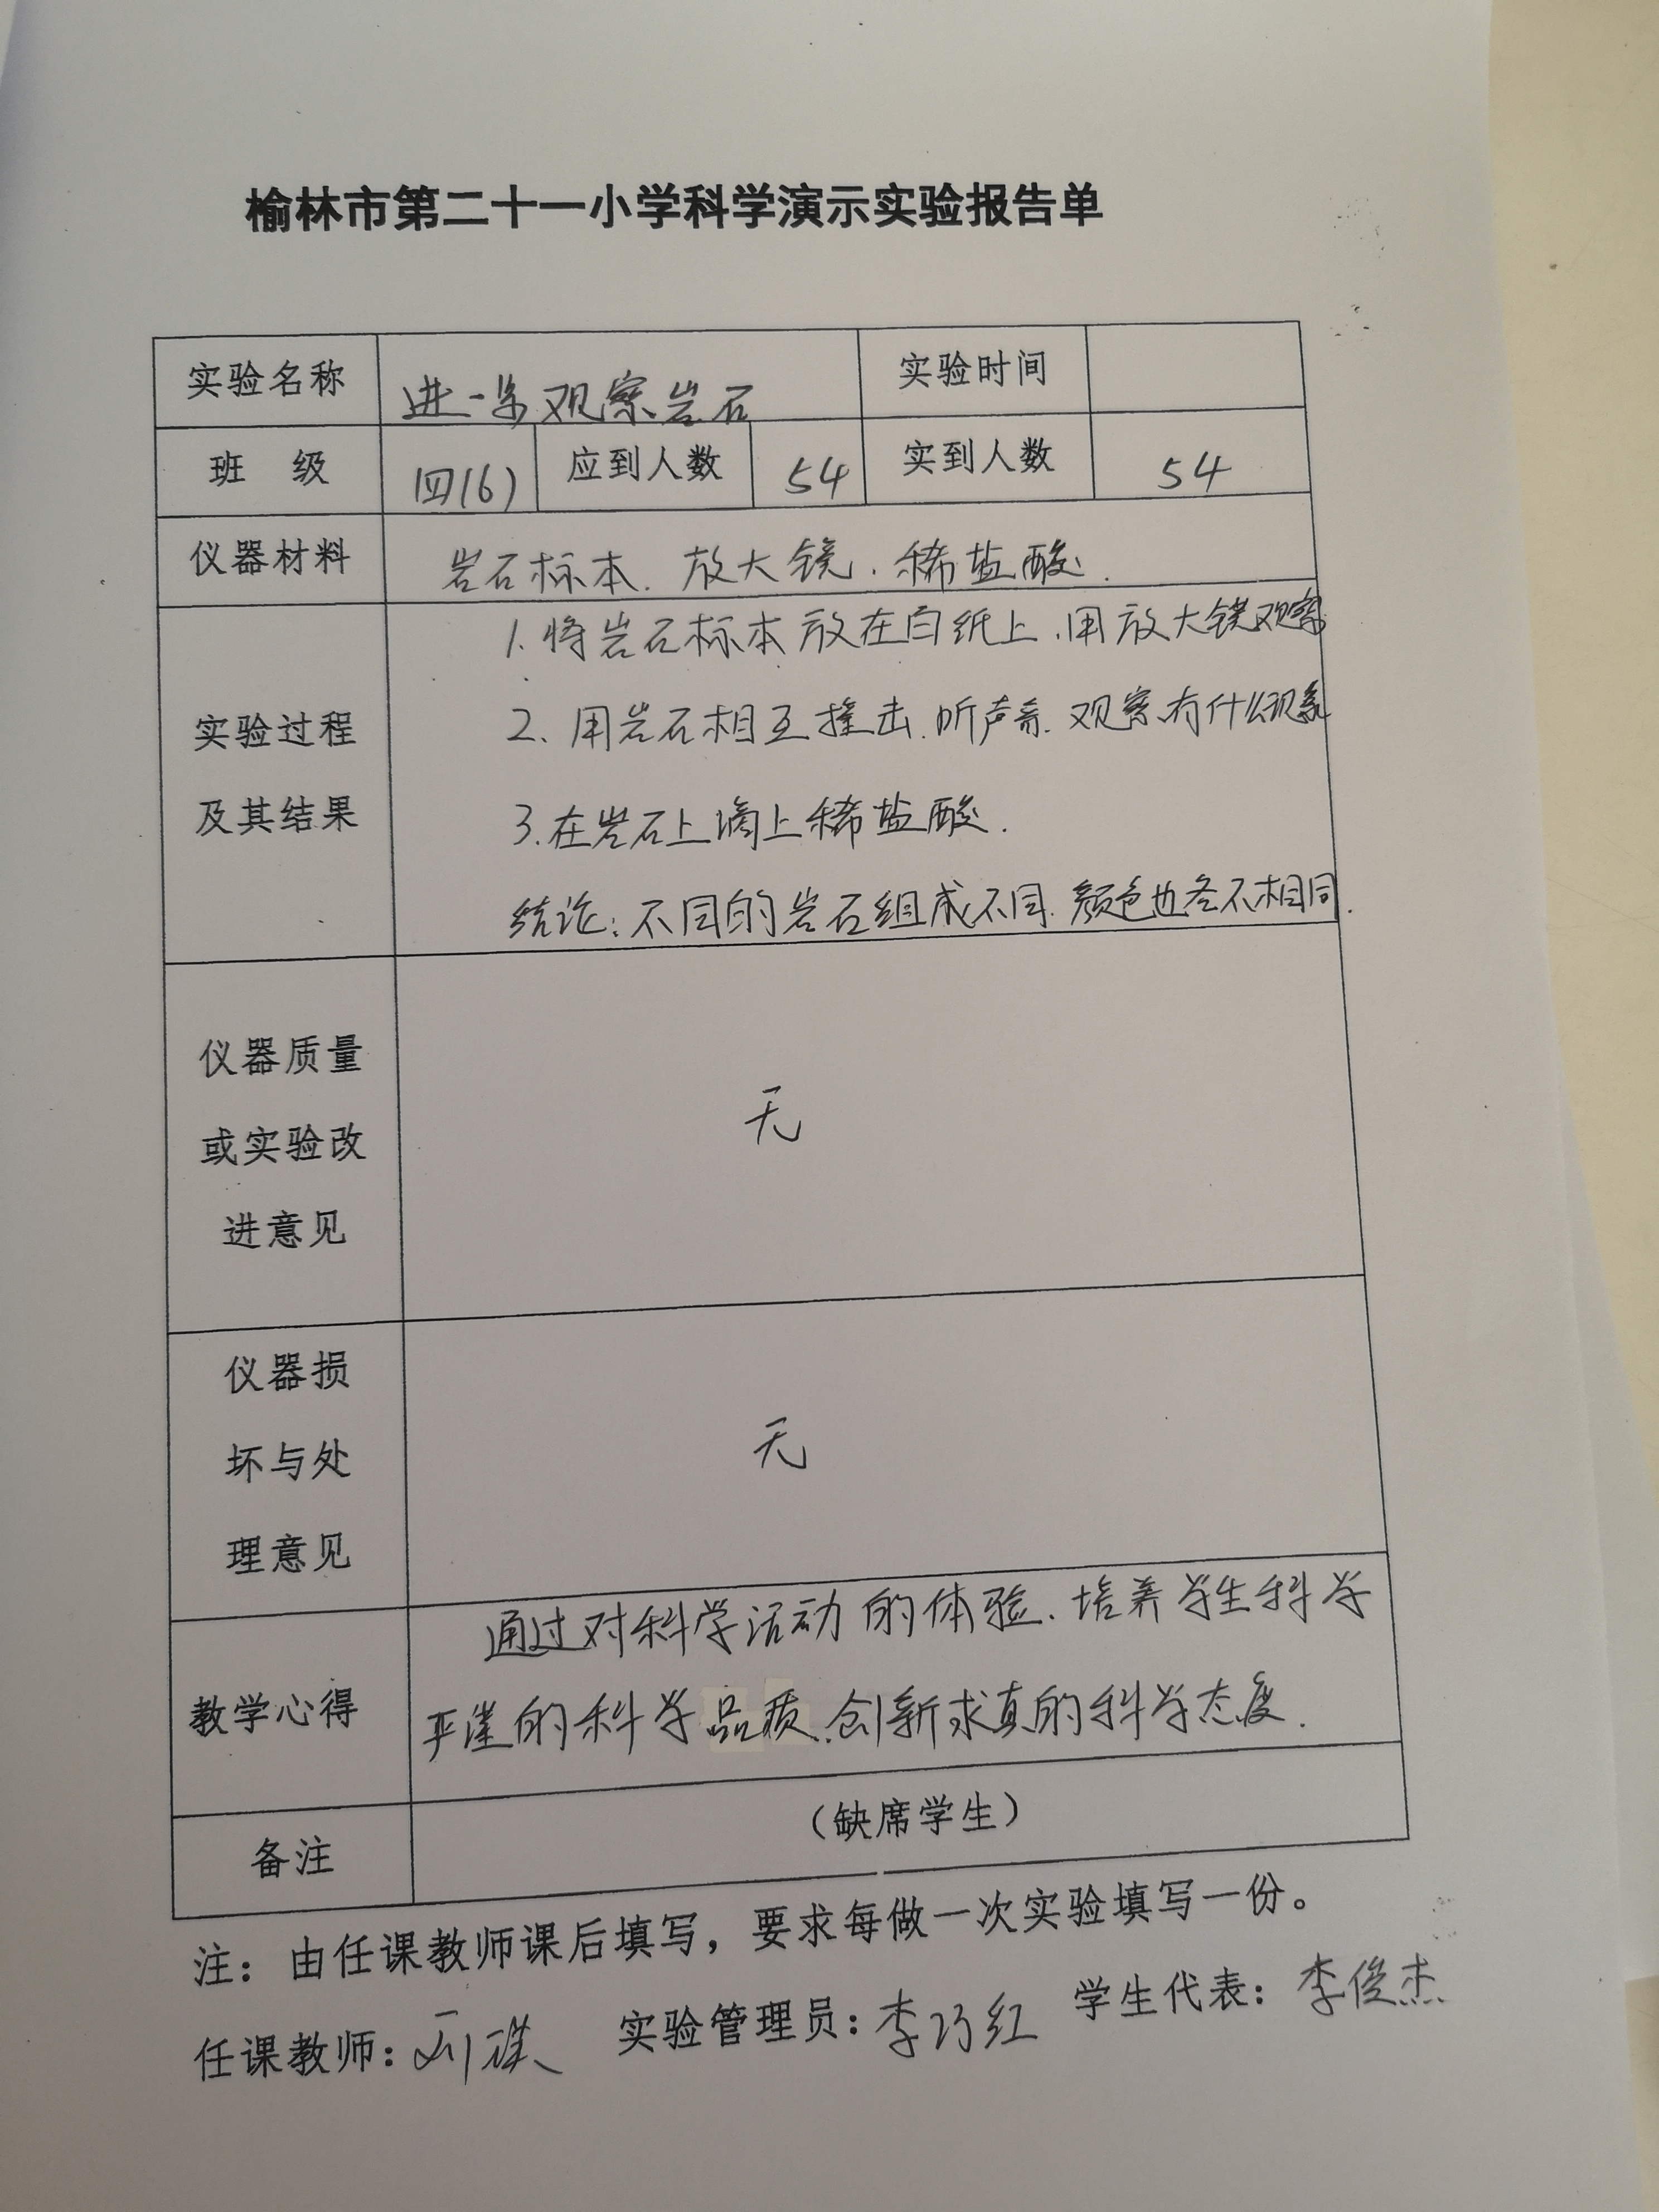 榆林市第二十一小学科学演示实验报告单
实验名称 进一步观察岩石 实验时间
班 级 四(6) 应到人数 54 实到人数 54
仪器材料 岩石标本、放大镜、稀盐酸.
实验过程
及其结果
1.将岩石标本放在白纸上、用放大镜观察
2、用岩石相互撞击、听声音、观察有什么现象
3.在岩石上滴上稀盐酸.
结论:不同的岩石组成不同、颜色也各不相同.
仪器质量
或实验改
进意见
无
仪器损
坏与处
理意见
无
教学心得
通过对科学活动的体验、培养学生科学
严谨的科学品质、创新求真的科学态度.
备注 (缺席学生)
注:由任课教师课后填写,要求每做一次实验填写一份。
任课教师: 实验管理员:李巧红 学生代表:李俊杰